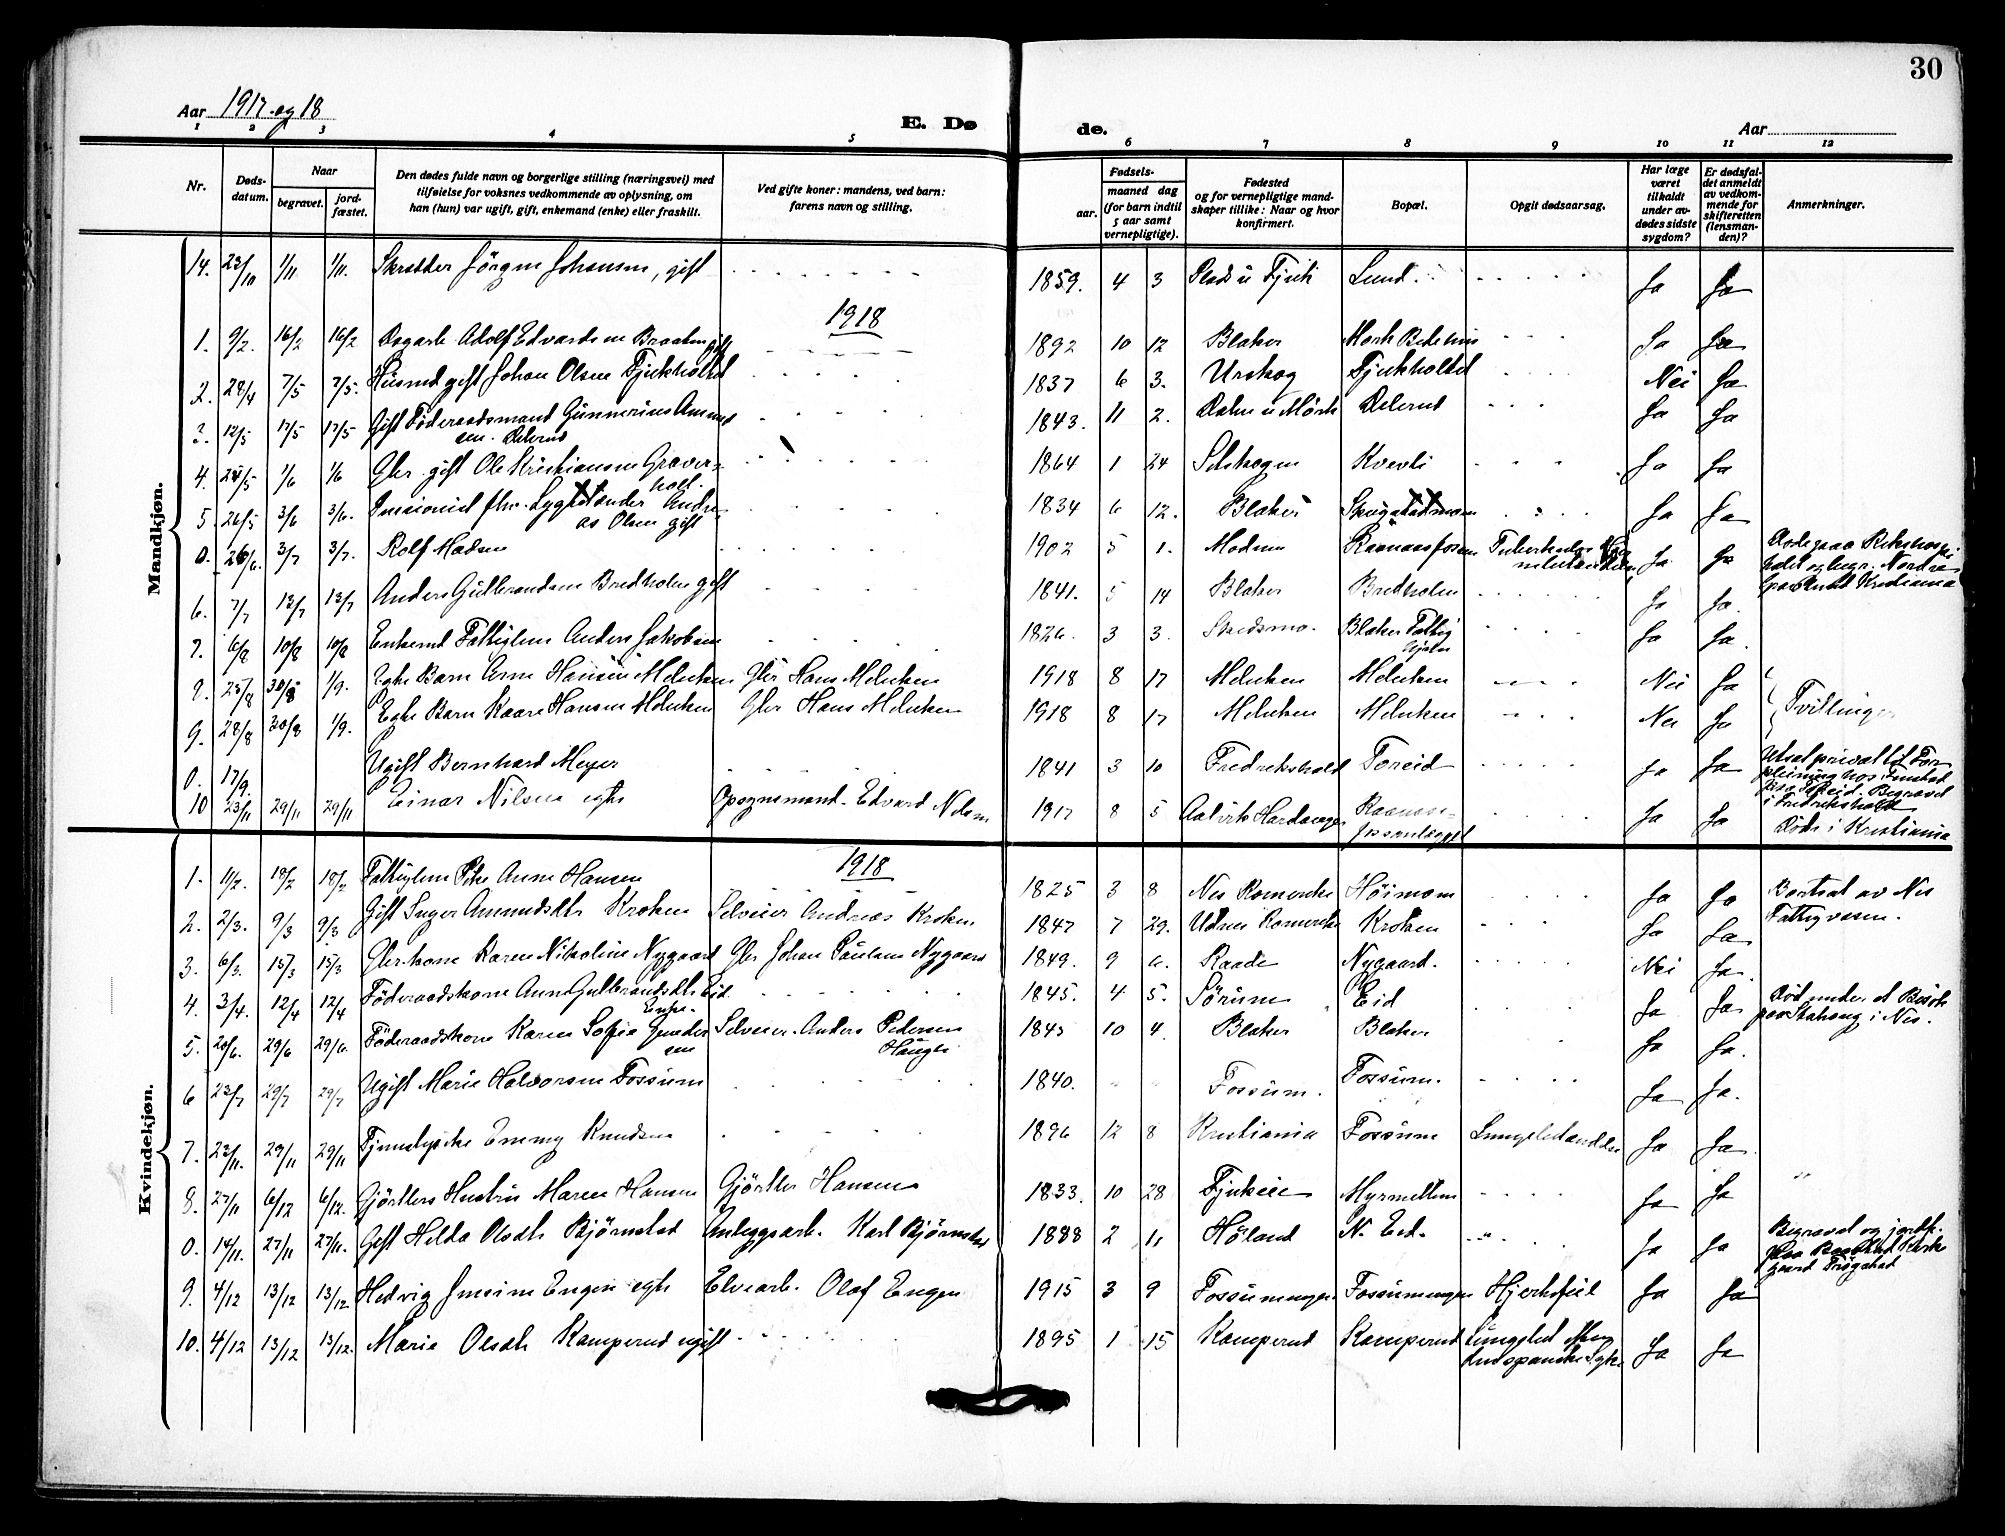 30
Aar 1917 og 18
E. Dø de.
Aar
1 2 3 4 5 6 7 8 9 10 11 12
Nr.
Døds-
datum.
Naar
begravet.
jord-
fæstet.
Den dødes fulde navn og borgerlige stilling (næringsvei) med
tilføielse for voksnes vedkommende av oplysning, om
han (hun) var ugift, gift, enkemand (enke) eller fraskilt.
Ved gifte koner: mandens, ved barn:
farens navn og stilling.
Fødsels-
aar.
maaned dag
(for barn indtil
5 aar samt
vernepligtige).
Fødested
og for vernepligtige mand-
skaper tillike: Naar og hvor
konfirmert.
Bopæl.
Opgit dødsaarsag.
Har læge
været
tilkaldt
under av-
dødes sidste
sygdom?
Er dødsfal-
det anmeldt
av vedkom-
mende for
skifteretten
(lensman-
den)?
Anmerkninger.
Mandkjøn.
14. 23/10 1/11 1/11. Skrædder Jörgen Johansen, gift 1859. 4 3 Lund Ja Ja
1918
1. 9/2. 16/2 16/2 Dagarb. Adolf Edvardsen Braaten gift 1892 10 12 Blaker Ja Ja
2. 28/4 7/5 7/5. Husmd gift Johan Olsen Tjukholtet 1837 6 3. Urskog Tjukholtet Nei Ja
3. 12/5 17/5 17/5 Gift Föderaadsmand Gunnerius Amund
sen. Delerud 1843. 11 2. Delerud Ja Ja
4. 24/5 1/6 1/6 Gbr. gift Ole Kristiansen Graver-
holt. 1864 1 24 Setskogen Kvevli Ja Ja
5. 26/5 3/6 3/6. Andre-
as Olsen gift 1834 6 12. Blaker Ja Ja
0. 26/6. 3/7 3/7. Rolf Madsen 1902 5 1. Modum Raanaasfossen Ja Ja Døde paa Rikshospi
talet og begr. Nordre
Gravlund Kristiania
6. 7/7 12/7 12/7 Anders Gulbrandsen Bredholen gift 1841. 5 14 Blaker Bredholen Ja Ja.
7. 6/8 10/8 10/8 Enkemd Fattiglem Anders Jakobsen 1826. 3 3. Skedsmo. Blaker Fattig
Ja Ja.
9. 25/8 30/8 1/9. Egte Barn Arne Hansen Melnken Gbr Hans Melnken 1918 8 17 Melnken Melnken Nei Ja
9. 28/8 30/8 1/9. Egte Barn Kaare Hansen Melnken Gbr Hans Melnken 1918 8 17 Melnken Melnken Nei Ja Tvillinger
0. 17/9. Ugift Bernhard Meyer 1841 3 10 Fredrikshald Toreid Ja Ja Utsat privat til For
pleining hos
paa Toreid. Begravet
i Fredrikshald
10 23/11 29/11 29/11 Einar Nilsen egte Opsynsmand. Edvard Nilsen 1917 8 5 Hardanger Raanaas-
fossanlægget Ja Ja Døde i Kristiania
Kvindekjøn.
1918
1. 11/2. 18/2 18/2 Fattiglem Pike Anne Hansen 1825 3 8 Nes Romerike Höimoen Ja Ja Bortsat av Nes
Fattigvæsen.
2. 2/3. 9/3 9/3 Gift Inger Amundsdtr Kroken Selveier Andreas Kroken 1847 7 29. Udnes Romerike Kroken Ja Ja
3. 6/3. 15/3 15/3 Gbr.kone Karen Nikoline Nygaard Gbr Johan Paulsen Nygaard 1849. 9 6. Raade Nygaard. Nei Ja.
4. 3/4. 12/4 12/4 Föderaadskone Anne Gulbrandsdtr Eid.
Enke. 1845. 4 5. Sörum Eid Ja Ja. Død under et Besök
paa Stahaug i Nes.
5. 20/6. 29/6 29/6. Föderaadskone Karen Sofie Gunder
sen Selveier. Anders Pedersen
Haugli 1843 10 4. Blaker Blaker Ja Ja.
6 23/7 29/7 29/7 Ugift Marie Halvorsen Fossum 1840. Fossum. Fossum. Ja Ja.
7. 22/11. 29/11 29/11 Tjenestepike Emmy Knudsen 1896 12 8 Kristiania Fossum Lungebetændelse Ja Ja
8. 27/11 6/12 6/12. Gjörtlers Hustru Maren Hansen Gjörtler Hansen 1833. 10 28 Tjukeie Ja Ja
0. 14/11. 27/11 27/11. Gift Hilda Olsdtr Björnstad Anleggsarb. Karl Björnstad 1888 2 11 Höland N. Eid. Ja Ja Begravet og jordf.
paa Baastad Kirke
gaard Trögstad
9. 4/12 13/12 13/12. Hedvig Jensine Engen egte Elvearb. Olaf Engen 1915 3 9 Fossumengen Fossumengen Hjertefeil Ja Ja
10. 4/12 13/12 13/12. Marie Olsdtr Kamperud ugift 1895 1 15 Kamperud Kamperud Lungebet Meng
Ja Ja